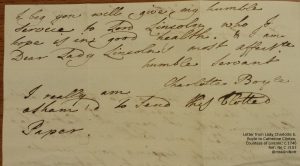 I beg you will give my humble
Service to Lord Lincoln, who I
hope is in good health. I am
Dear Lady Lincoln's most affecte
humble Servant
Charlotte Boyle
I really am
asham'd to Send this Blotted
Paper.
Letter from Lady Charlotte E.
Boyle to Catherine Clinton,
Countess of Lincoln; c.1746